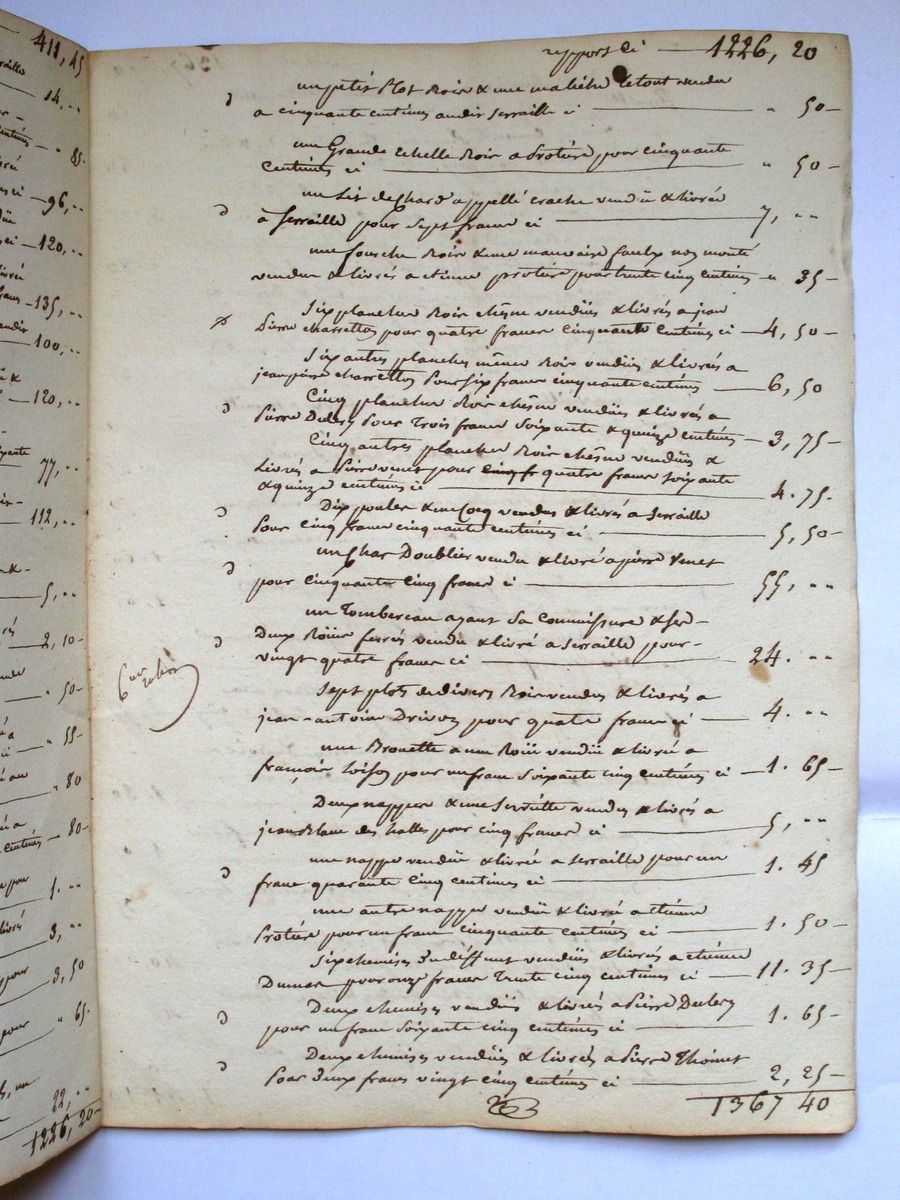 411, 45
raille
14, "
85-
96, "
120, "
135, "
100, "
120, "
77, "
112, "
5, "
2, 10-
50-
" 55
" 80
80-
1. "
3, "
3, 50
" 65-
22, "
1226, 20-
report ci — 1226, 20
un petit plot Bois & une le tout vendu
a cinquante centimes audit Serraille ci — " 50-
une Grande Echelle Bois a Protére pour cinquante
Centimes ci — " 50-
un lit de Chard appellé crache vendu & livré
à Serraille pour Sept francs ci — 7, "
une fourche Bois & une mauvaise faulx non monté
vendu & livrés a etienne protére pour trente cinq centimes " 35-
Six planches Bois chêne vendües & livrés a jean
Pierre charretton pour quatre francs Cinquante Centimes ci — 4, 50-
Six autres planches même Bois vendües & livrés a
jean pierre charretton pour Six francs cinquante centimes — 6, 50
Cinq planches Bois chêne vendües & livrés a
Pierre Dulery pour Trois francs Soixante & quinze centimes — 3, 75-
Cinq autres planches Bois chêne vendües &
livrés a Pierre venet pour cinq fr quatre francs soixante
& quinze centimes ci — 4. 75-
Dix poules & un Cocq vendus & livrés a Serraille
pour Cinq francs cinquante centimes ci — 5, 50-
un Char Doublier vendu & livré a pierre Venet
pour cinquante Cinq francs ci — 55, "
un Tombereau ayant Sa Commissure & Ses-
Deux Roües ferrés vendu & livré a Serraille pour-
vingt quatre francs ci — 24. "
Sept plots de divers Bois vendus & livrés a
jean-antoine Drivon pour quatre francs ci — 4. "
une Brouette a une Roüe vendüe & livrée a
francois loison pour un franc Soixante cinq centimes ci — 1. 65-
6me
Deux nappes & une Serviette vendus & livrés a
jean Blanc des halles pour cinq francs ci — 5, "
une nappe vendüe & livrée a Serraille pour un
franc quarante Cinq centimes ci — 1. 45
une autre nappe vendüe & livrée a étienne
Protére pour un franc cinquante centimes ci — 1. 50-
Six chemises vendües & livrés a etienne
Dumas pour onze francs Trente Cinq centimes ci — 11. 35-
Deux chemises vendües & livrés a Pierre Dulery
pour un franc Soixante cinq centimes ci — 1. 65-
Deux chemises vendües & livrés a Pierre Thoinet
pour Deux francs vingt Cinq centimes ci — 2, 25-
1367 40